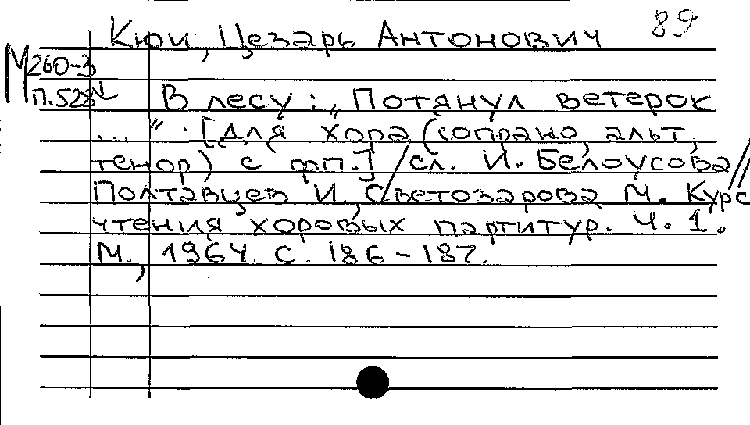 89
Кюи, Цезарь Антонович
М260-3
П.528
В лесу: „Потянул ветерок
..." . [Для хора (сопрано, альт,
тенор) с фп.] / сл. И. Белоусова //
Полтавцев И., Светозарова М. Курс
чтения хоровых партитур. Ч. 1.
М., 1964. С. 186-187.